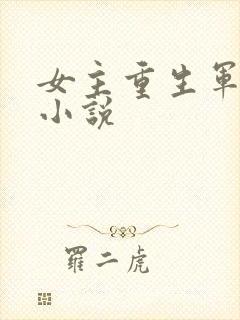 女主重生軍
小說
羅二虎